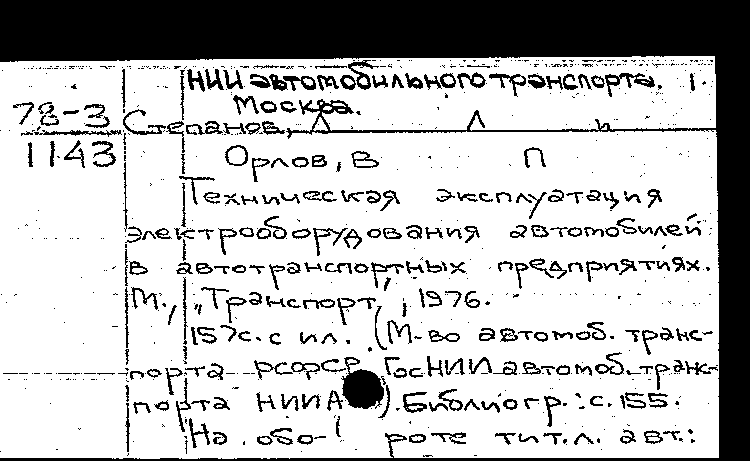 НИИ автомобильного транспорта. 1.
Москва.
78-3 Степанов, А Л и
1143 Орлов, В П
Техническая эксплуатация
электрооборудования автомобилей
в автотранспортных предприятиях.
М., „Транспорт", 1976.
157с. с ил. (М-во автомоб. транс-
порта РСФСР. ГосНИИ автомоб. тран-
порта НИИА ). Библиогр.: с. 155.
На обо- роте тит. л. авт.: